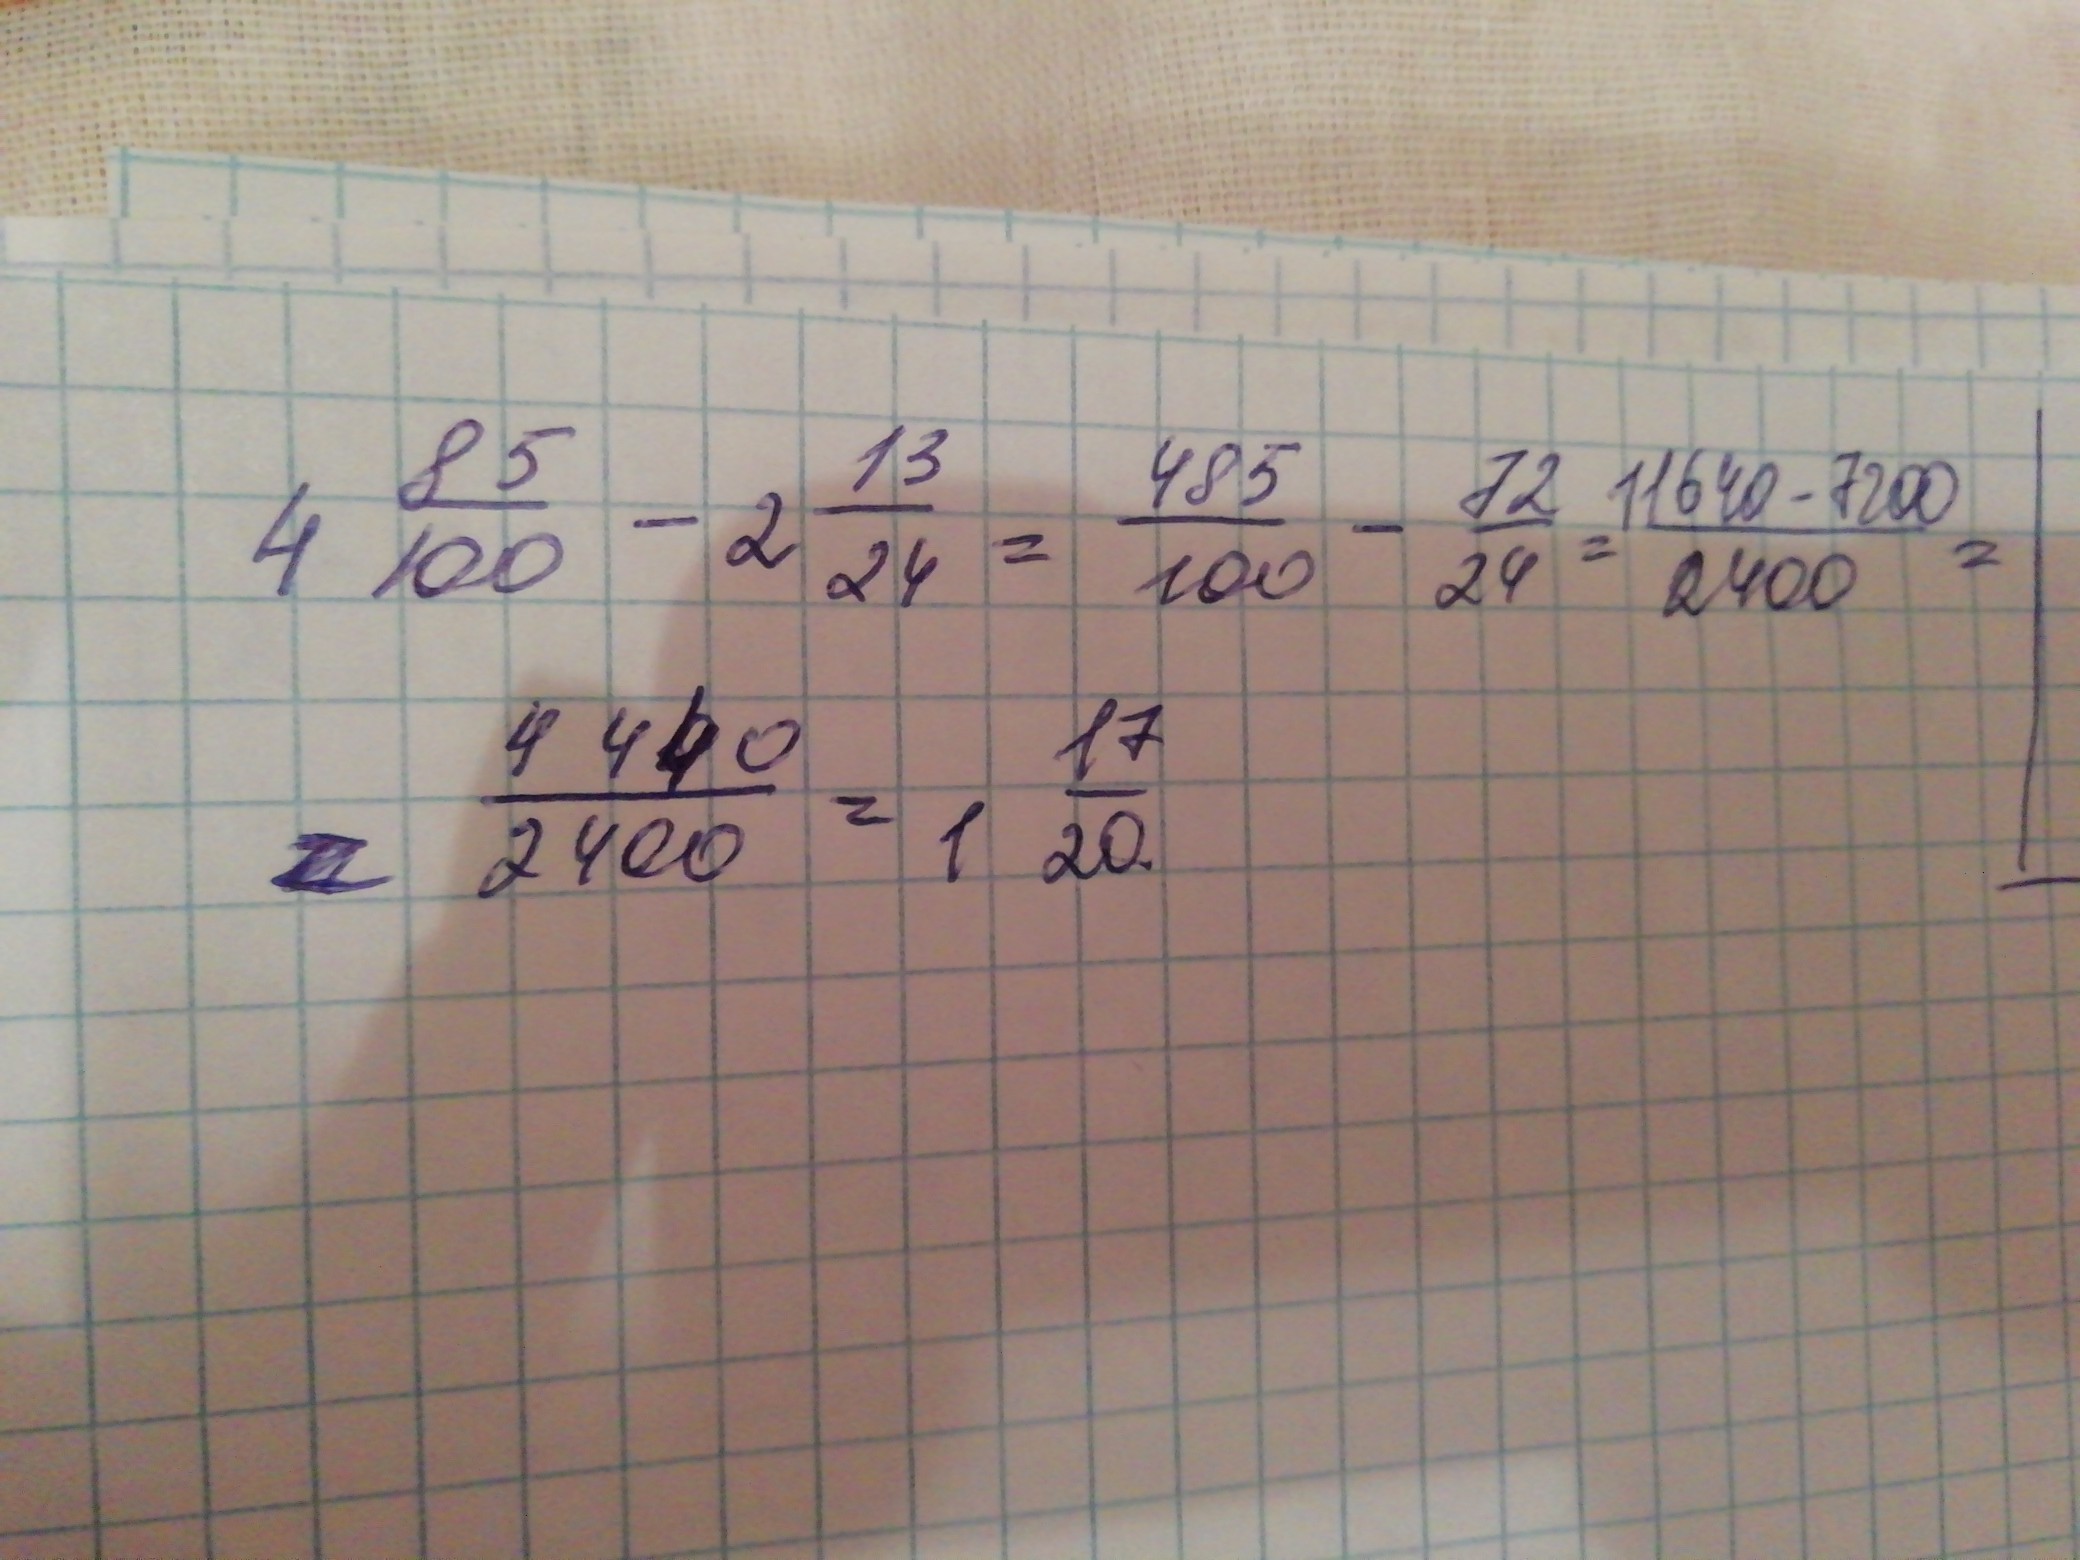 4 85/100 - 2 13/24 = 485/100 - 72/24 = 11640-7200/2400 =
= 4440/2400 = 1 17/20